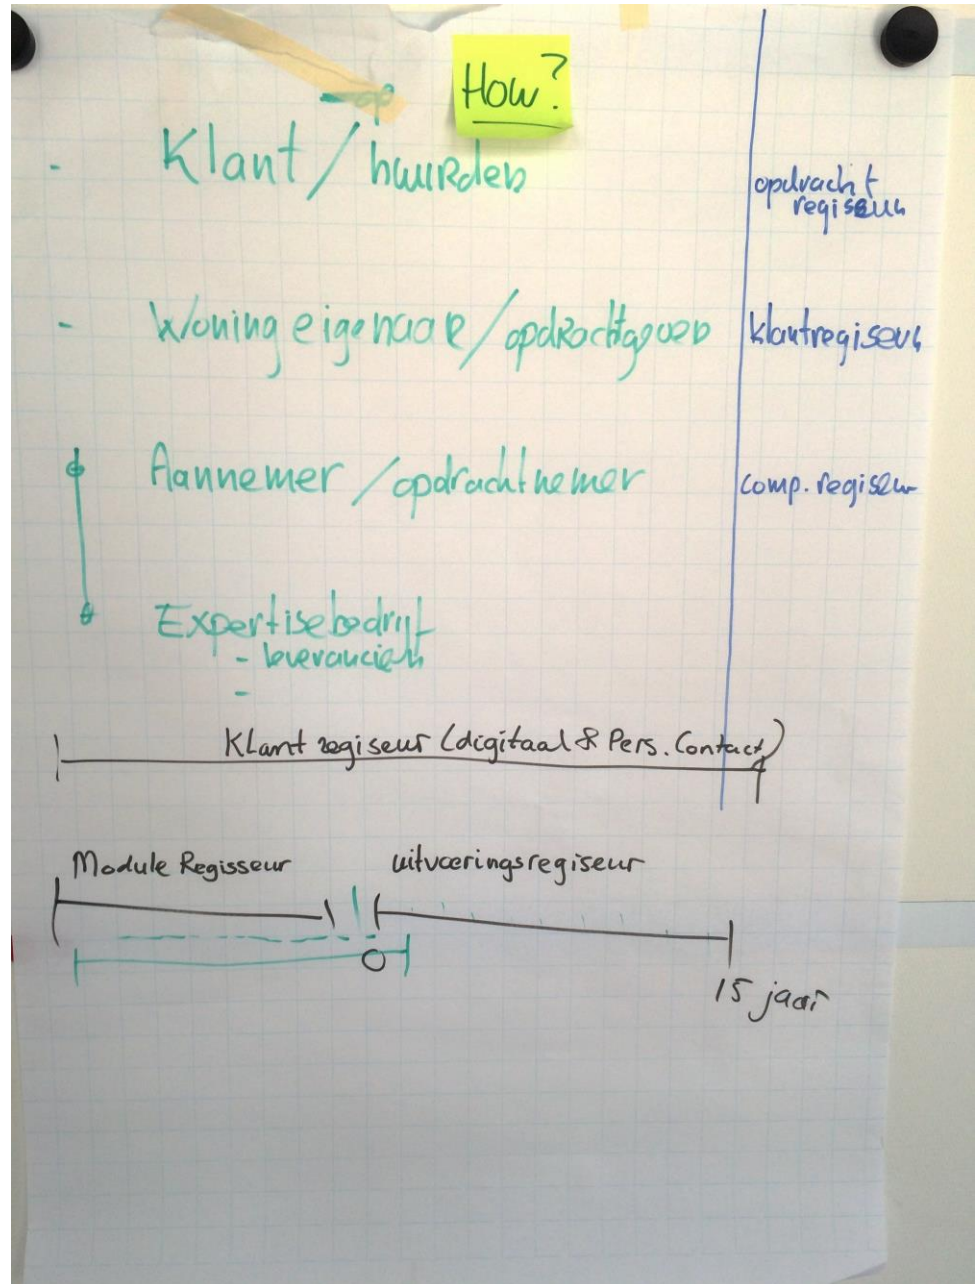 How?
- Klant / huurder
opdracht
regiseur
- Woning eigenaar / opdrachtgever
klantregiseur
Aannemer / opdrachtnemer
comp. regiseur
Expertisebedrijf
- leverancier
-
Klant regiseur (digitaal & Pers. Contact)
Module Regisseur
uitvoeringsregiseur
0
15 jaar